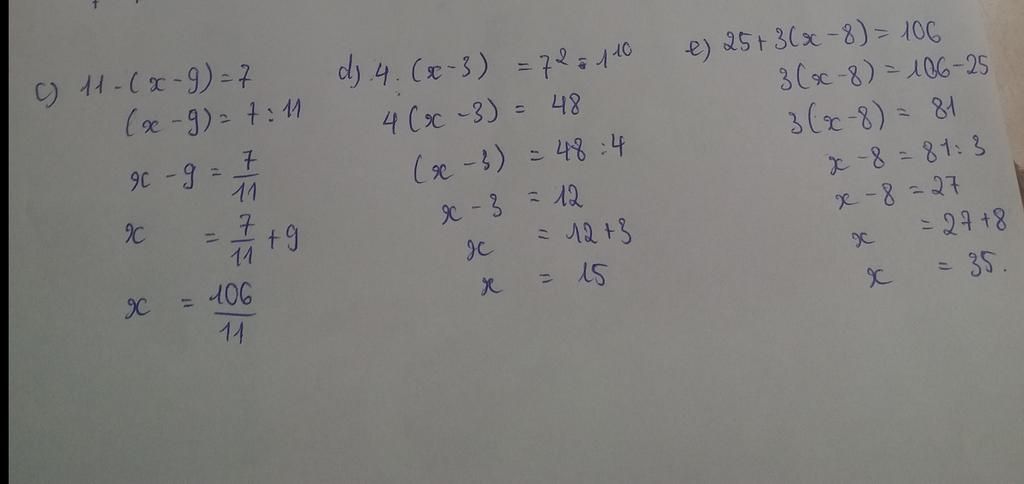 c) 11 - (x - 9) = 7
(x - 9) = 7 : 11
x - 9 = 7/11
x = 7/11 + 9
x = 106/11
d) 4. (x - 3) = 7² = 1¹⁰
4(x - 3) = 48
(x - 3) = 48 : 4
x - 3 = 12
x = 12 + 3
x = 15
e) 25 + 3(x - 8) = 106
3(x - 8) = 106 - 25
3(x - 8) = 81
x - 8 = 81 : 3
x - 8 = 27
x = 27 + 8
x = 35.